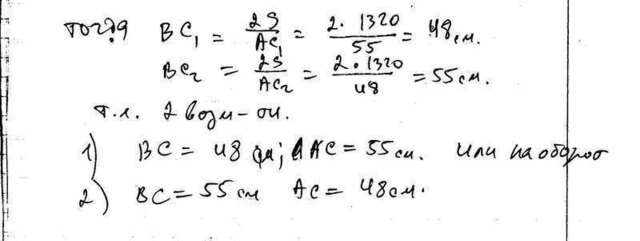 тогда BC₁ = 2S/AC₁ = 2·1320/55 = 48 см.
BC₂ = 2S/AC₂ = 2·1320/48 = 55 см.
т.е. 2 возм-ти.
1) BC = 48 см; AC = 55 см. или наоборот
2) BC = 55 см AC = 48 см.